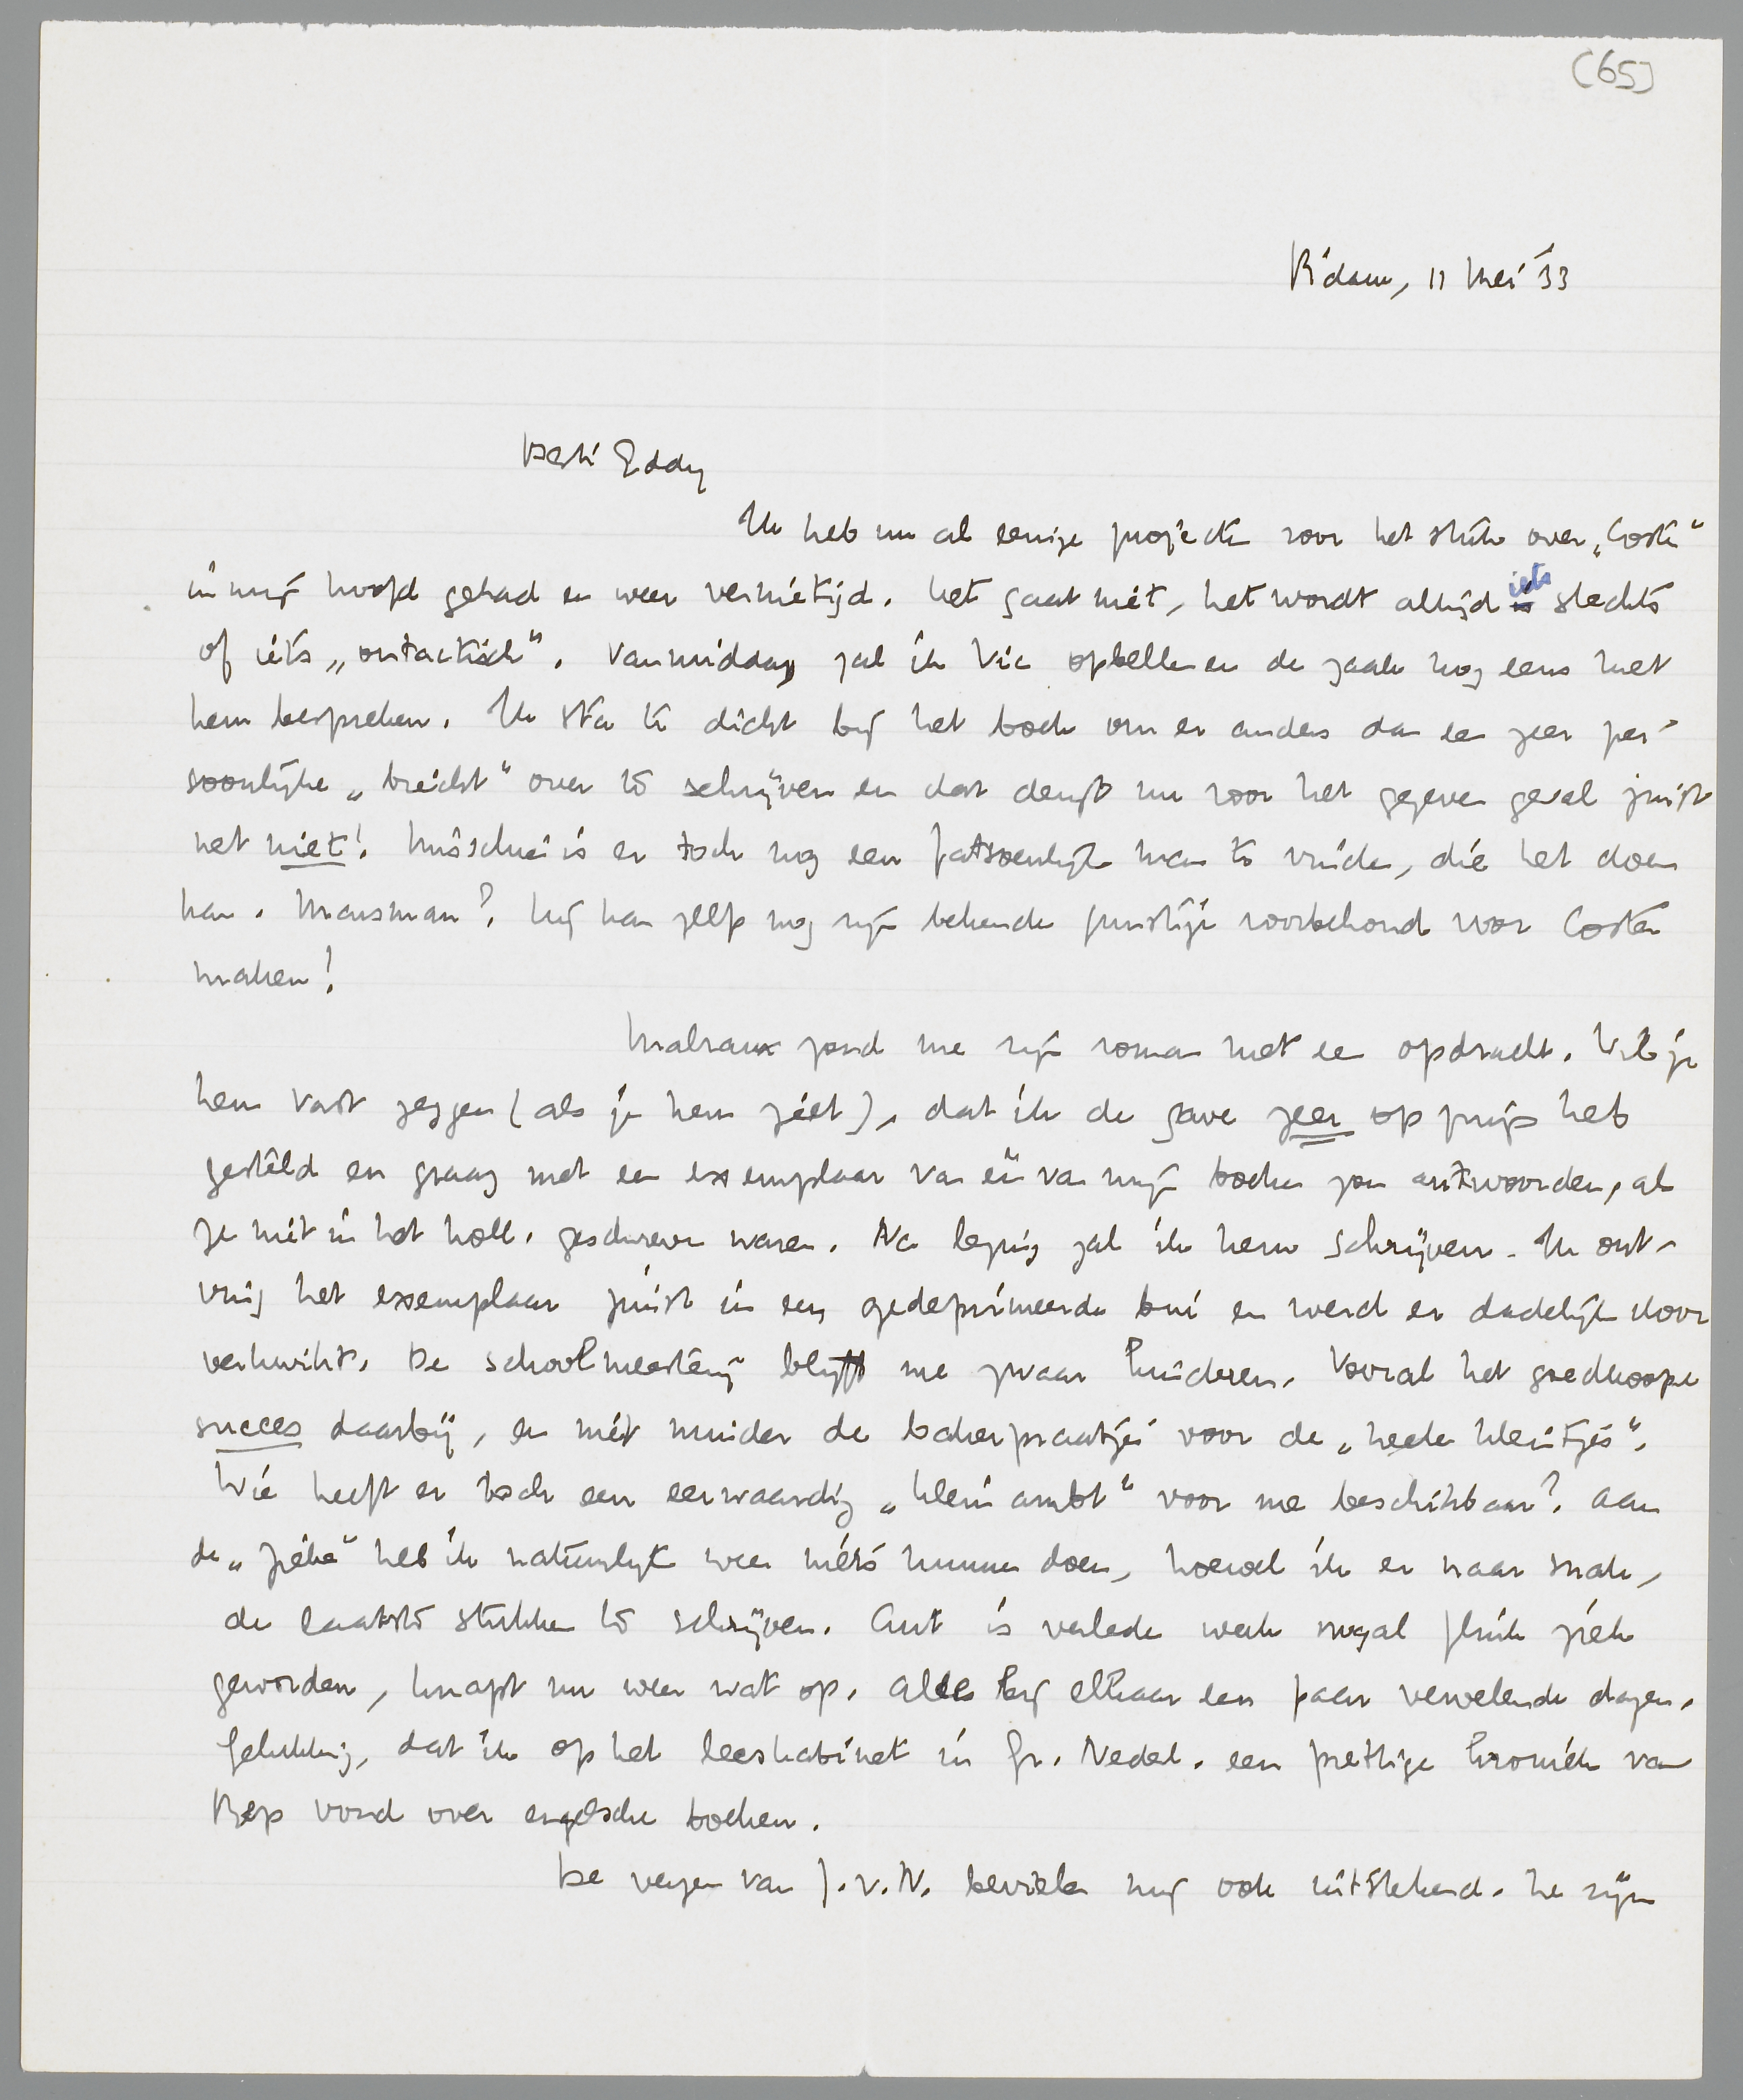 (65)
R'dam, 11 Mei '33
Beste Eddy
Ik heb nu al eenige projecten voor het stuk over „Coster"
in mijn hoofd gehad en weer vernietigd. Het gaat niet, het wordt altijd iets slechts
of iets „ontactisch". Vanmiddag zal ik Vic opbellen en de zaak nog eens met
hem bespreken. Ik sta te dicht bij het boek om er anders dan een zeer per-
soonlijke „biecht" over te schrijven en dat deugt nu voor het gegeven geval juist
net niet! Misschien is er toch nog een fatsoenlijk man te vinden, die het doen
kan. Marsman? Hij kan zelfs nog zijn bekende gunstige voorbehoud voor Coster
maken!
Malraux zond me zijn roman met een opdracht. Wil je
hem vast zeggen (als je hem ziet), dat ik de gave zeer op prijs heb
gesteld en graag met een exemplaar van één van mijn boeken zou antwoorden, als
ze niet in het holl. geschreven waren. Na lezing zal ik hem schrijven. Ik ont-
ving het exemplaar juist in een gedeprimeerde bui en werd er dadelijk door
verkwikt. De schoolmeesterij blijft me zwaar hinderen. Vooral het goedkoope
succes daarbij, en niet minder de bakerpraatjes voor de „heele kleintjes".
Wie heeft er toch een eerwaardig „klein ambt" voor me beschikbaar? Aan
de „ziekte" heb ik natuurlijk weer niets kunnen doen, hoewel ik er naar snak,
de laatste stukken te schrijven. Ant is verleden week nogal flink ziek
geworden, knapt nu weer wat op. Alles bij elkaar een paar vervelende dagen.
Gelukkig, dat ik op het leeskabinet in Gr. Nederl. een prettige kroniek van
Bep vond over engelsche boeken.
De verzen van J.v.N. bevielen mij ook uitstekend. Ze zijn